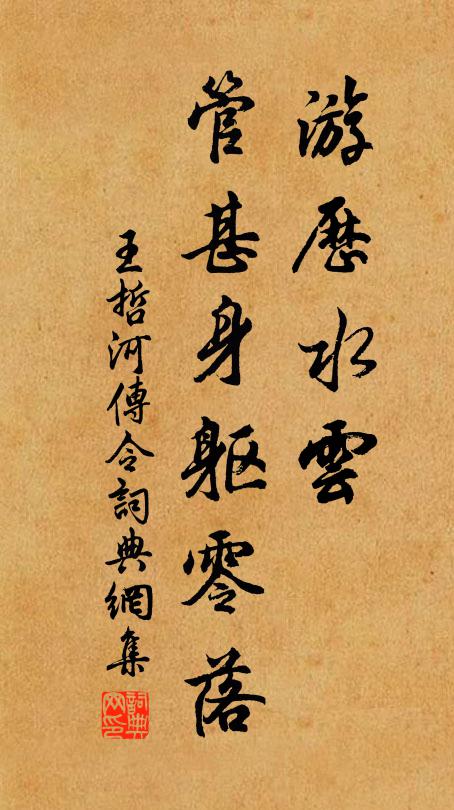 游歷水雲
管甚身軀零落
王哲河傳令詞典網集
詞典網印